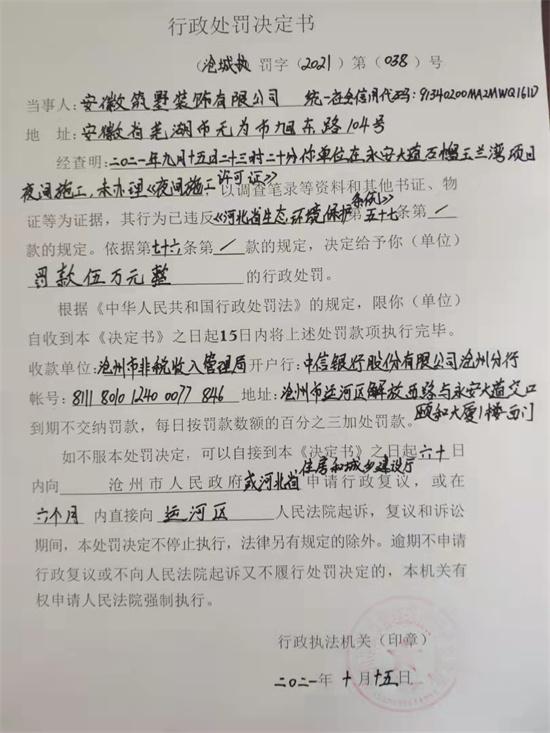 行政处罚决定书
（沧城执 罚字（2021）第（038）号
当事人：安徽筑墅装饰有限公司 统一社会信用代码：91340200MA2MWQ161D
地 址：安徽省芜湖市无为市九回东路104号
经查明：二〇二一年九月十五日二十三时二十分你单位在永安大道石榴玉兰湾项目
夜间施工，未办理《夜间施工许可证》以调查笔录等资料和其他书证、物
证等为证据，其行为已违反《河北省生态环境保护条例》第五十七条第/
款的规定。依据第七十六条第/款的规定，决定给予你（单位）
罚款伍万元整 的行政处罚。
根据《中华人民共和国行政处罚法》的规定，限你（单位）
自收到本《决定书》之日起15日内将上述处罚款项执行完毕。
收款单位：沧州市非税收入管理局开户行：中信银行股份有限公司沧州分行
帐号：8111 8010 1240 0077 846 地址：沧州市运河区解放西路与永安大道交口
颐和大厦1楼西门
到期不交纳罚款，每日按罚款数额的百分之三加处罚款。
如不服本处罚决定，可以自接到本《决定书》之日起六十日
内向 沧州市人民政府或河北省住房和城乡建设厅申请行政复议，或在
六个月 内直接向 运河区 人民法院起诉，复议和诉讼
期间，本处罚决定不停止执行，法律另有规定的除外。逾期不申请
行政复议或不向人民法院起诉又不履行处罚决定的，本机关有
权申请人民法院强制执行。
行政执法机关（印章）
二〇二一年 十月十五日